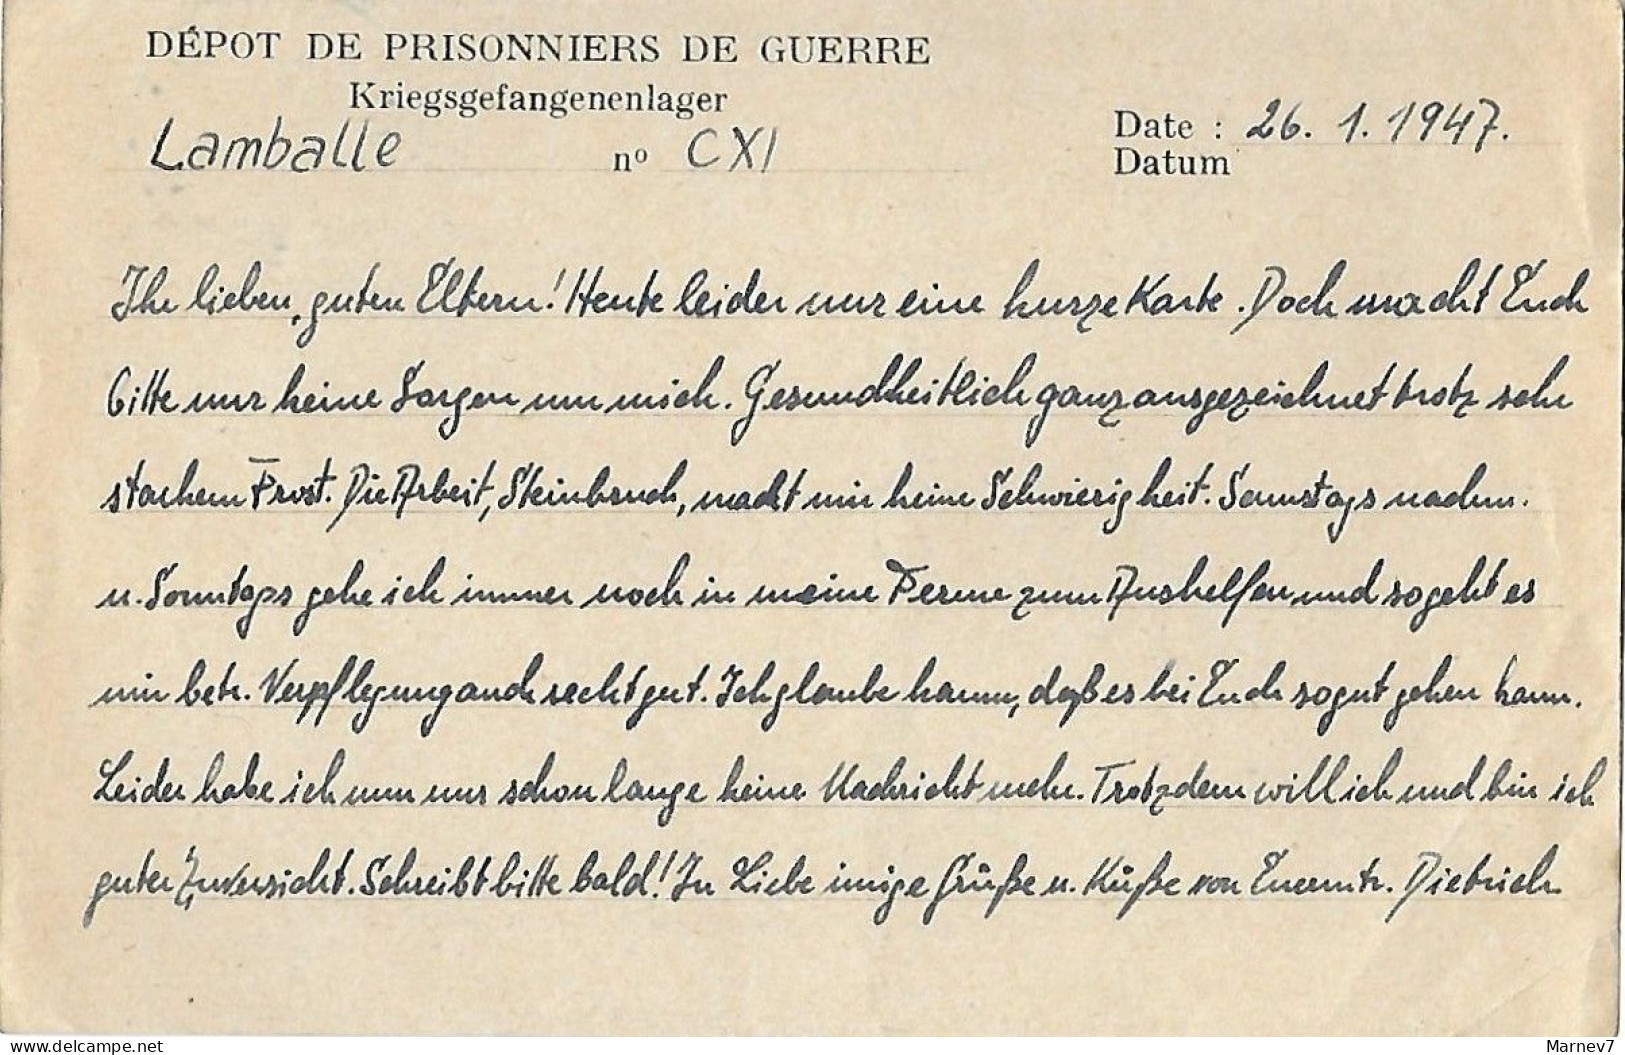 DÉPOT DE PRISONNIERS DE GUERRE
Kriegsgefangenenlager
Lamballe nº CXI
Date : 26. 1. 1947.
Datum
Ihr lieben, guten Eltern! Heute leider nur eine kurze Karte. Doch macht Euch
bitte nur keine Sorgen um mich. Gesundheitlich ganz ausgezeichnet trotz sehr
starkem Frost. Die Arbeit, Steinbruch, macht mir keine Schwierigkeit. Samstags nachm.
u. Sonntags gehe ich immer noch in meine Ferme zum Aushelfen und so geht es
mir betr. Verpflegung auch recht gut. Ich glaube kaum, daß es bei Euch so gut gehen kann.
Leider habe ich nun nur schon lange keine Nachricht mehr. Trotzdem will ich und bin ich
guter Zuversicht. Schreibt bitte bald! In Liebe innige Grüße u. Küße von Eurem tr. Dietrich
delcampe.net
Marnev7